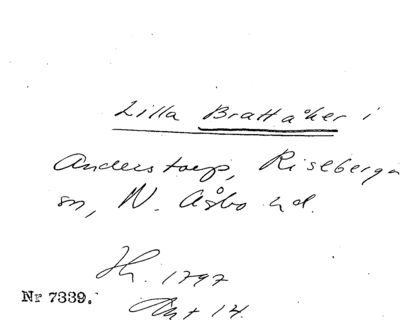 Lilla Brattåker i
Anderstorp, Riseberga
sn, N. Åsbo hd.
Jh. 1797
Nr 7339.
Akt 14.